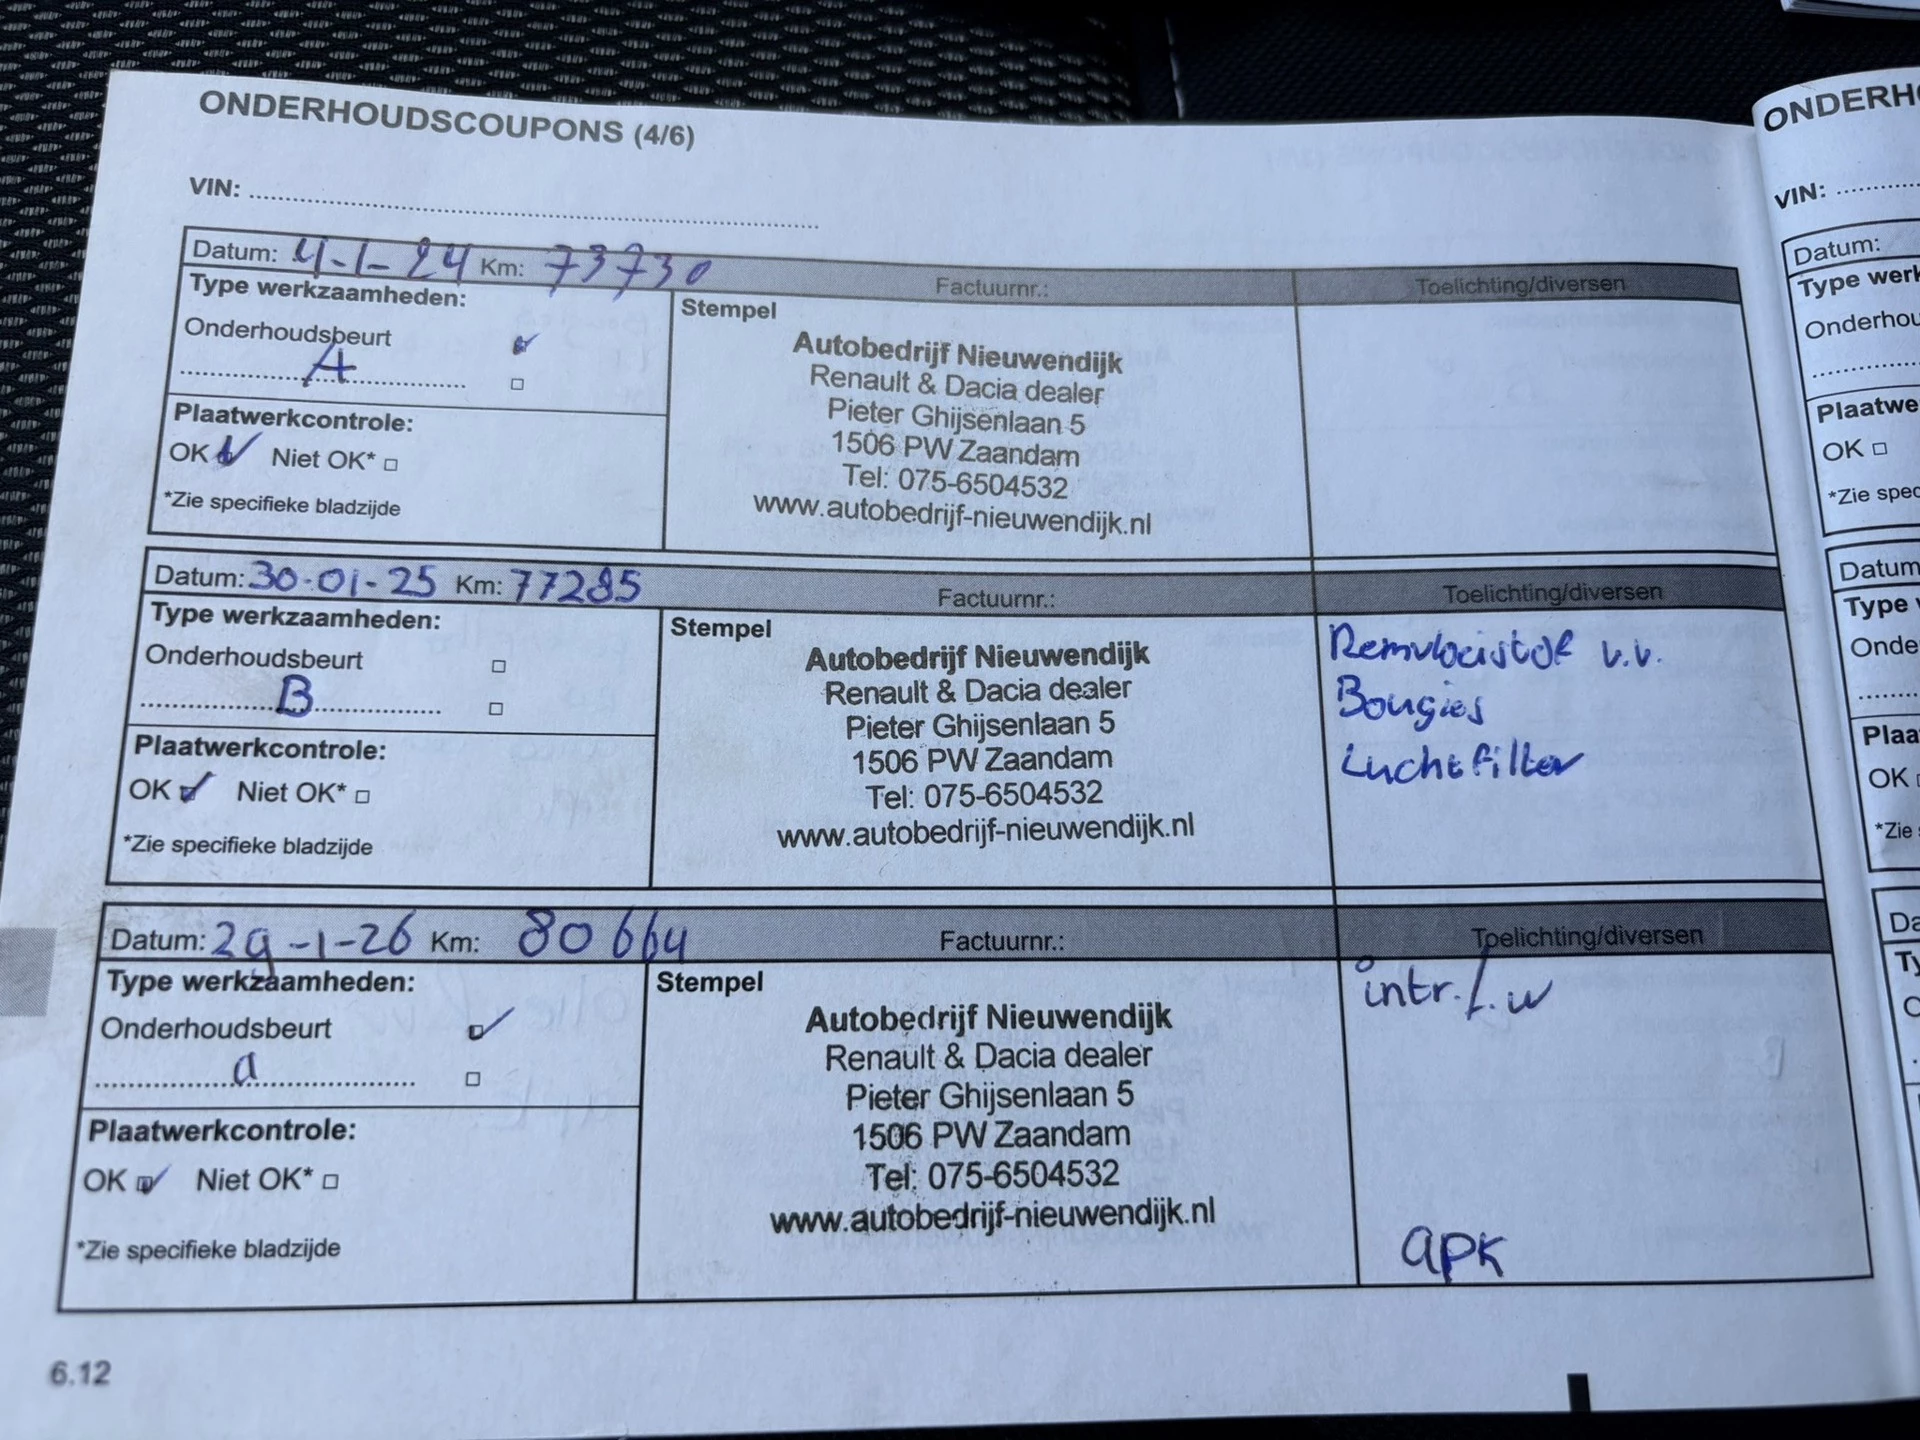 ONDERHOUDSCOUPONS (4/6)
VIN:
Datum: 4-1-24 Km: 73730 Factuurnr.: Toelichting/diversen
Type werkzaamheden:
Stempel
Onderhoudsbeurt
A
Plaatwerkcontrole:
OK Niet OK*
*Zie specifieke bladzijde
Autobedrijf Nieuwendijk
Renault & Dacia dealer
Pieter Ghijsenlaan 5
1506 PW Zaandam
Tel: 075-6504532
www.autobedrijf-nieuwendijk.nl
Datum: 30-01-25 Km: 77285 Factuurnr.: Toelichting/diversen
Type werkzaamheden:
Stempel
Onderhoudsbeurt
B
Plaatwerkcontrole:
OK Niet OK*
*Zie specifieke bladzijde
Autobedrijf Nieuwendijk
Renault & Dacia dealer
Pieter Ghijsenlaan 5
1506 PW Zaandam
Tel: 075-6504532
www.autobedrijf-nieuwendijk.nl
Remvloeistof v.v.
Bougies
Luchtfilter
Datum: 29-1-26 Km: 80664 Factuurnr.: Toelichting/diversen
Type werkzaamheden:
Stempel
Onderhoudsbeurt
a
Plaatwerkcontrole:
OK Niet OK*
*Zie specifieke bladzijde
Autobedrijf Nieuwendijk
Renault & Dacia dealer
Pieter Ghijsenlaan 5
1506 PW Zaandam
Tel: 075-6504532
www.autobedrijf-nieuwendijk.nl
intr. f. w
apk
6.12
ONDERH
VIN:
Datum:
Type werk
Onderhou
Plaatwe
OK
*Zie spec
Datum
Type
Onde
Plaa
OK
*Zie
Da